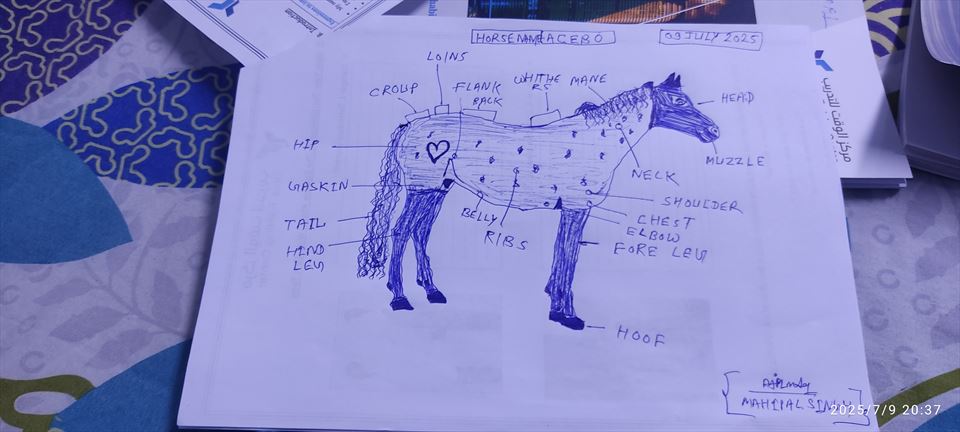 HORSENAMEACEBO
09 JULY 2025
LOINS
CROUP
FLANK
BACK
WHITHE
RS
MANE
HEAD
MUZZLE
HIP
NECK
GASKIN
SHOULDER
TAIL
BELLY
CHEST
RIBS
ELBOW
HIND
LEG
FORE LEG
HOOF
MAHIPAL SINGH
2025/7/9 20:37